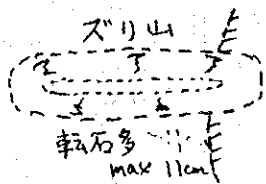 ズリ山
転石多
max 11cm